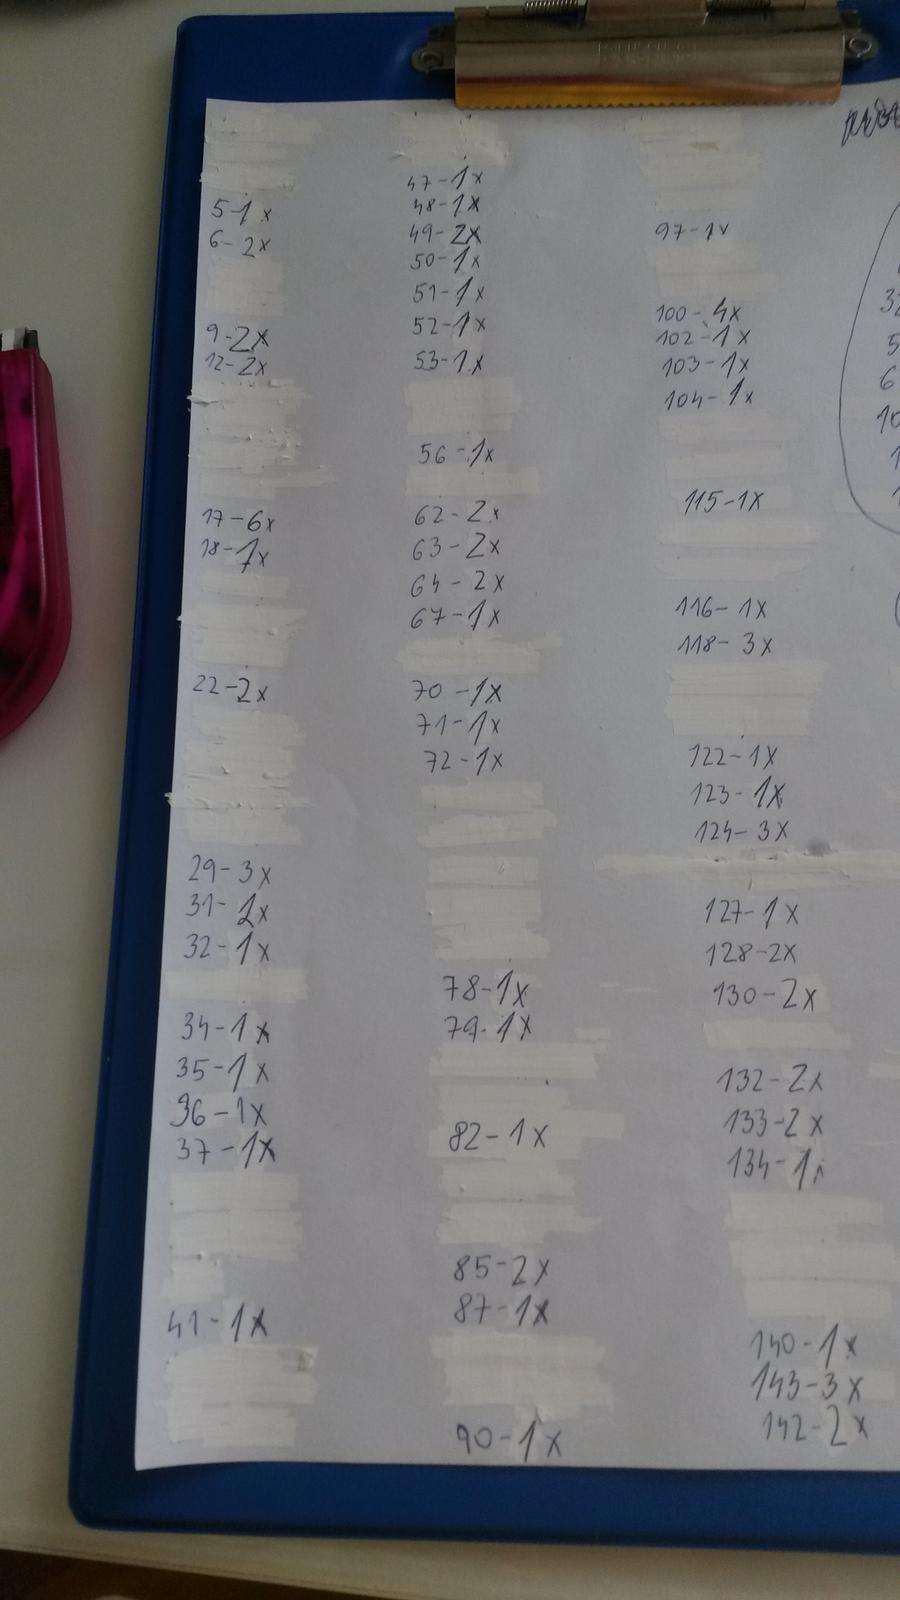 5-1x
6-2x
9-2x
12-2x
17-6x
18-1x
22-2x
29-3x
31-1x
32-1x
34-1x
35-1x
36-1x
37-1x
41-1x
47-1x
48-1x
49-2x
50-1x
51-1x
52-1x
53-1x
56-1x
62-2x
63-2x
64-2x
67-1x
70-1x
71-1x
72-1x
78-1x
79-1x
82-1x
85-2x
87-1x
90-1x
97-1x
100-4x
102-1x
103-1x
104-1x
115-1x
116-1x
118-3x
122-1x
123-1x
124-3x
127-1x
128-2x
130-2x
132-2x
133-2x
134-1x
140-1x
143-3x
142-2x